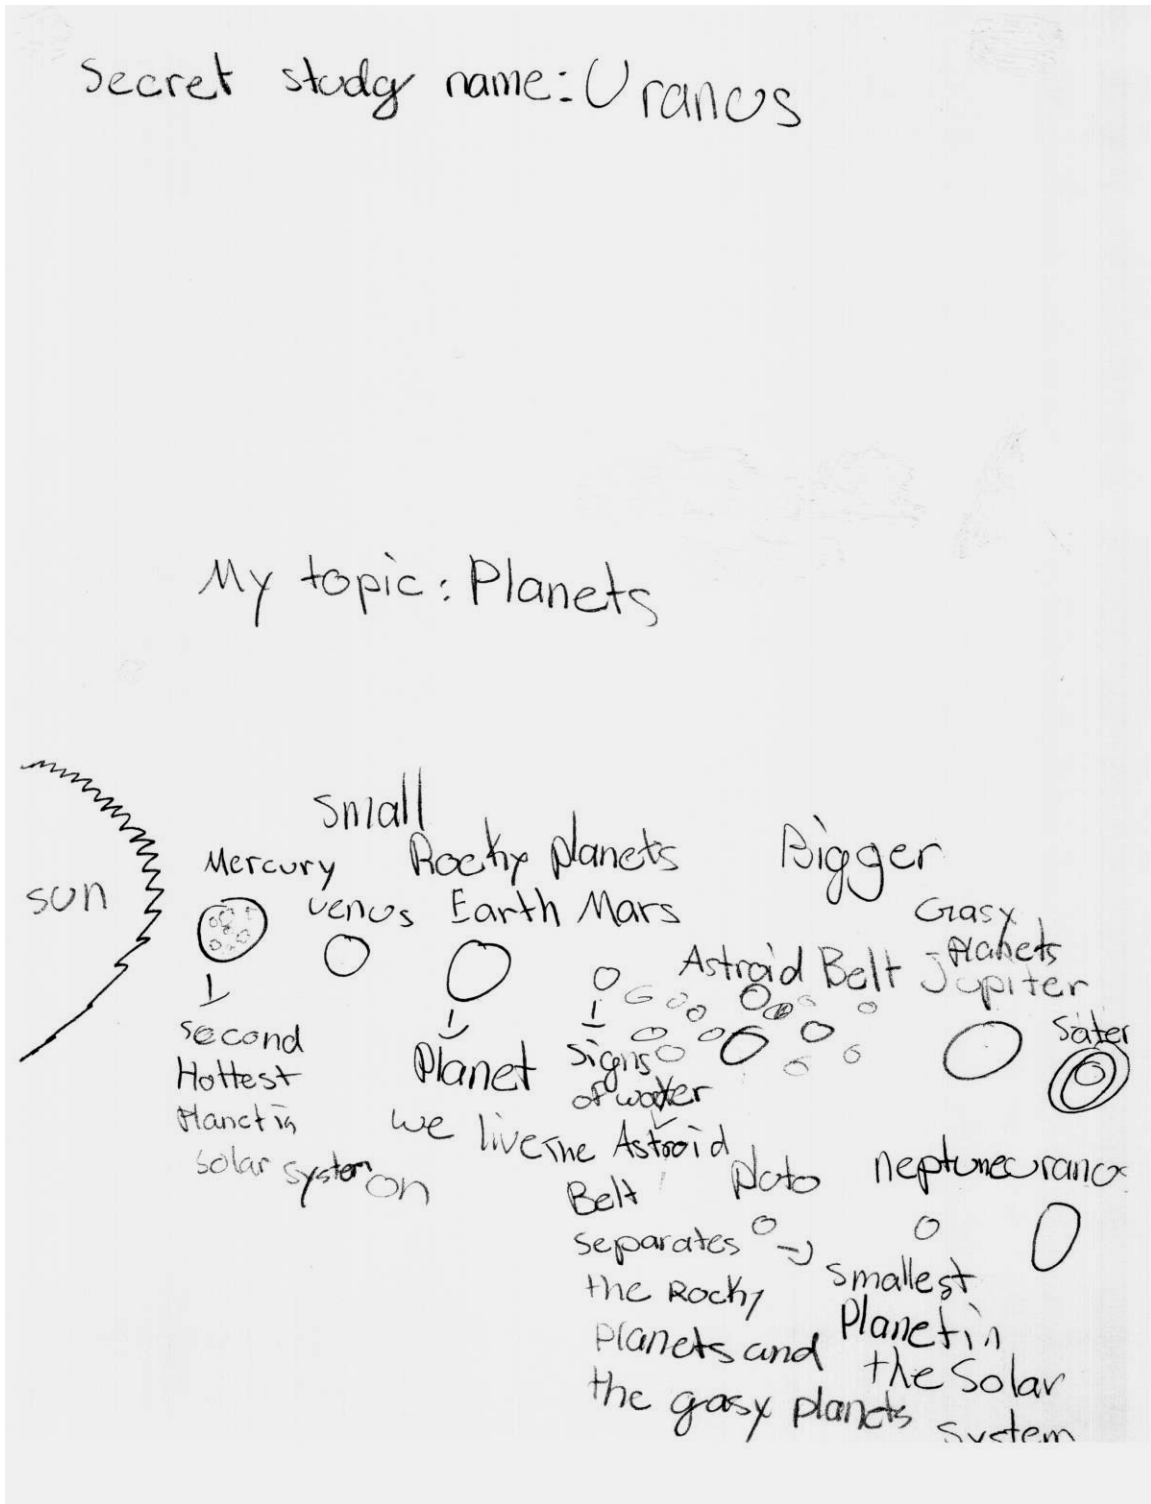 Secret study name: Uranus
My topic: Planets
small
Rocky planets
Bigger
Mercury
sun
venus
Earth
Mars
Gasy
planets
Astroid Belt
Jupiter
Sater
second
Hottest
Planet in
solar system
Planet
we live
on
signs
of water
The Astroid
Belt
separates
the Rocky
planets and
the gasy planets
pluto
neptune
uranox
smallest
Planet in
the Solar
system